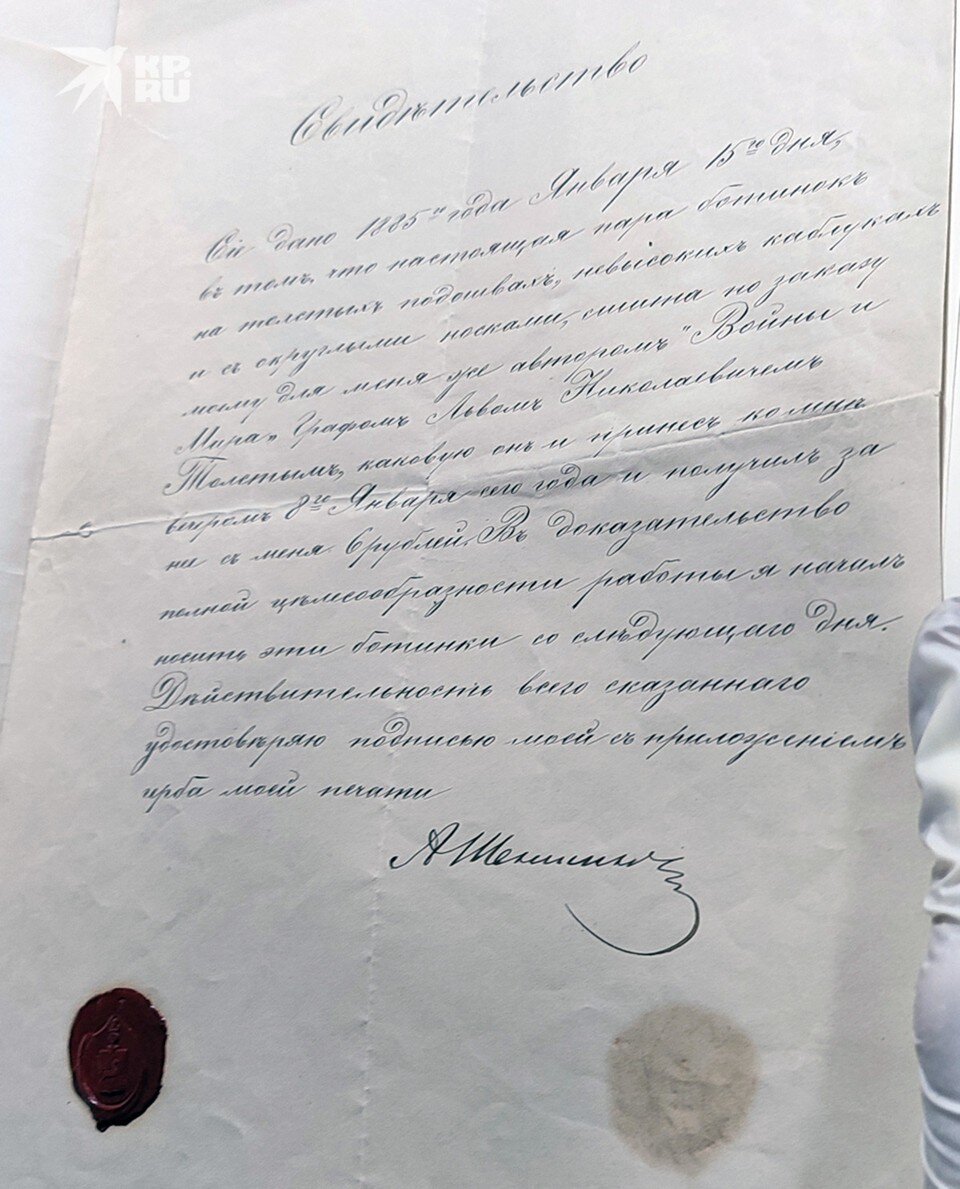 KP.RU
Свидѣтельство
Сіе дано 1885го года Января 15го дня,
въ томъ, что настоящая пара ботинокъ
на толстыхъ подошвахъ, невысокихъ каблукахъ
и съ округлыми носками, сшита по заказу
моему для меня же авторомъ "Войны и
Мира„ Графомъ Львомъ Николаевичемъ
Толстымъ, каковую онъ и принесъ ко мнѣ
вечеромъ 8го Января сего года и получилъ за
нее съ меня 6 рублей. Въ доказательство
полной цѣлесообразности работы я началъ
носить эти ботинки со слѣдующаго дня.
Дѣйствительность всего сказаннаго
удостовѣряю подписью моей съ приложеніемъ
герба моей печати
А Шеншинъ